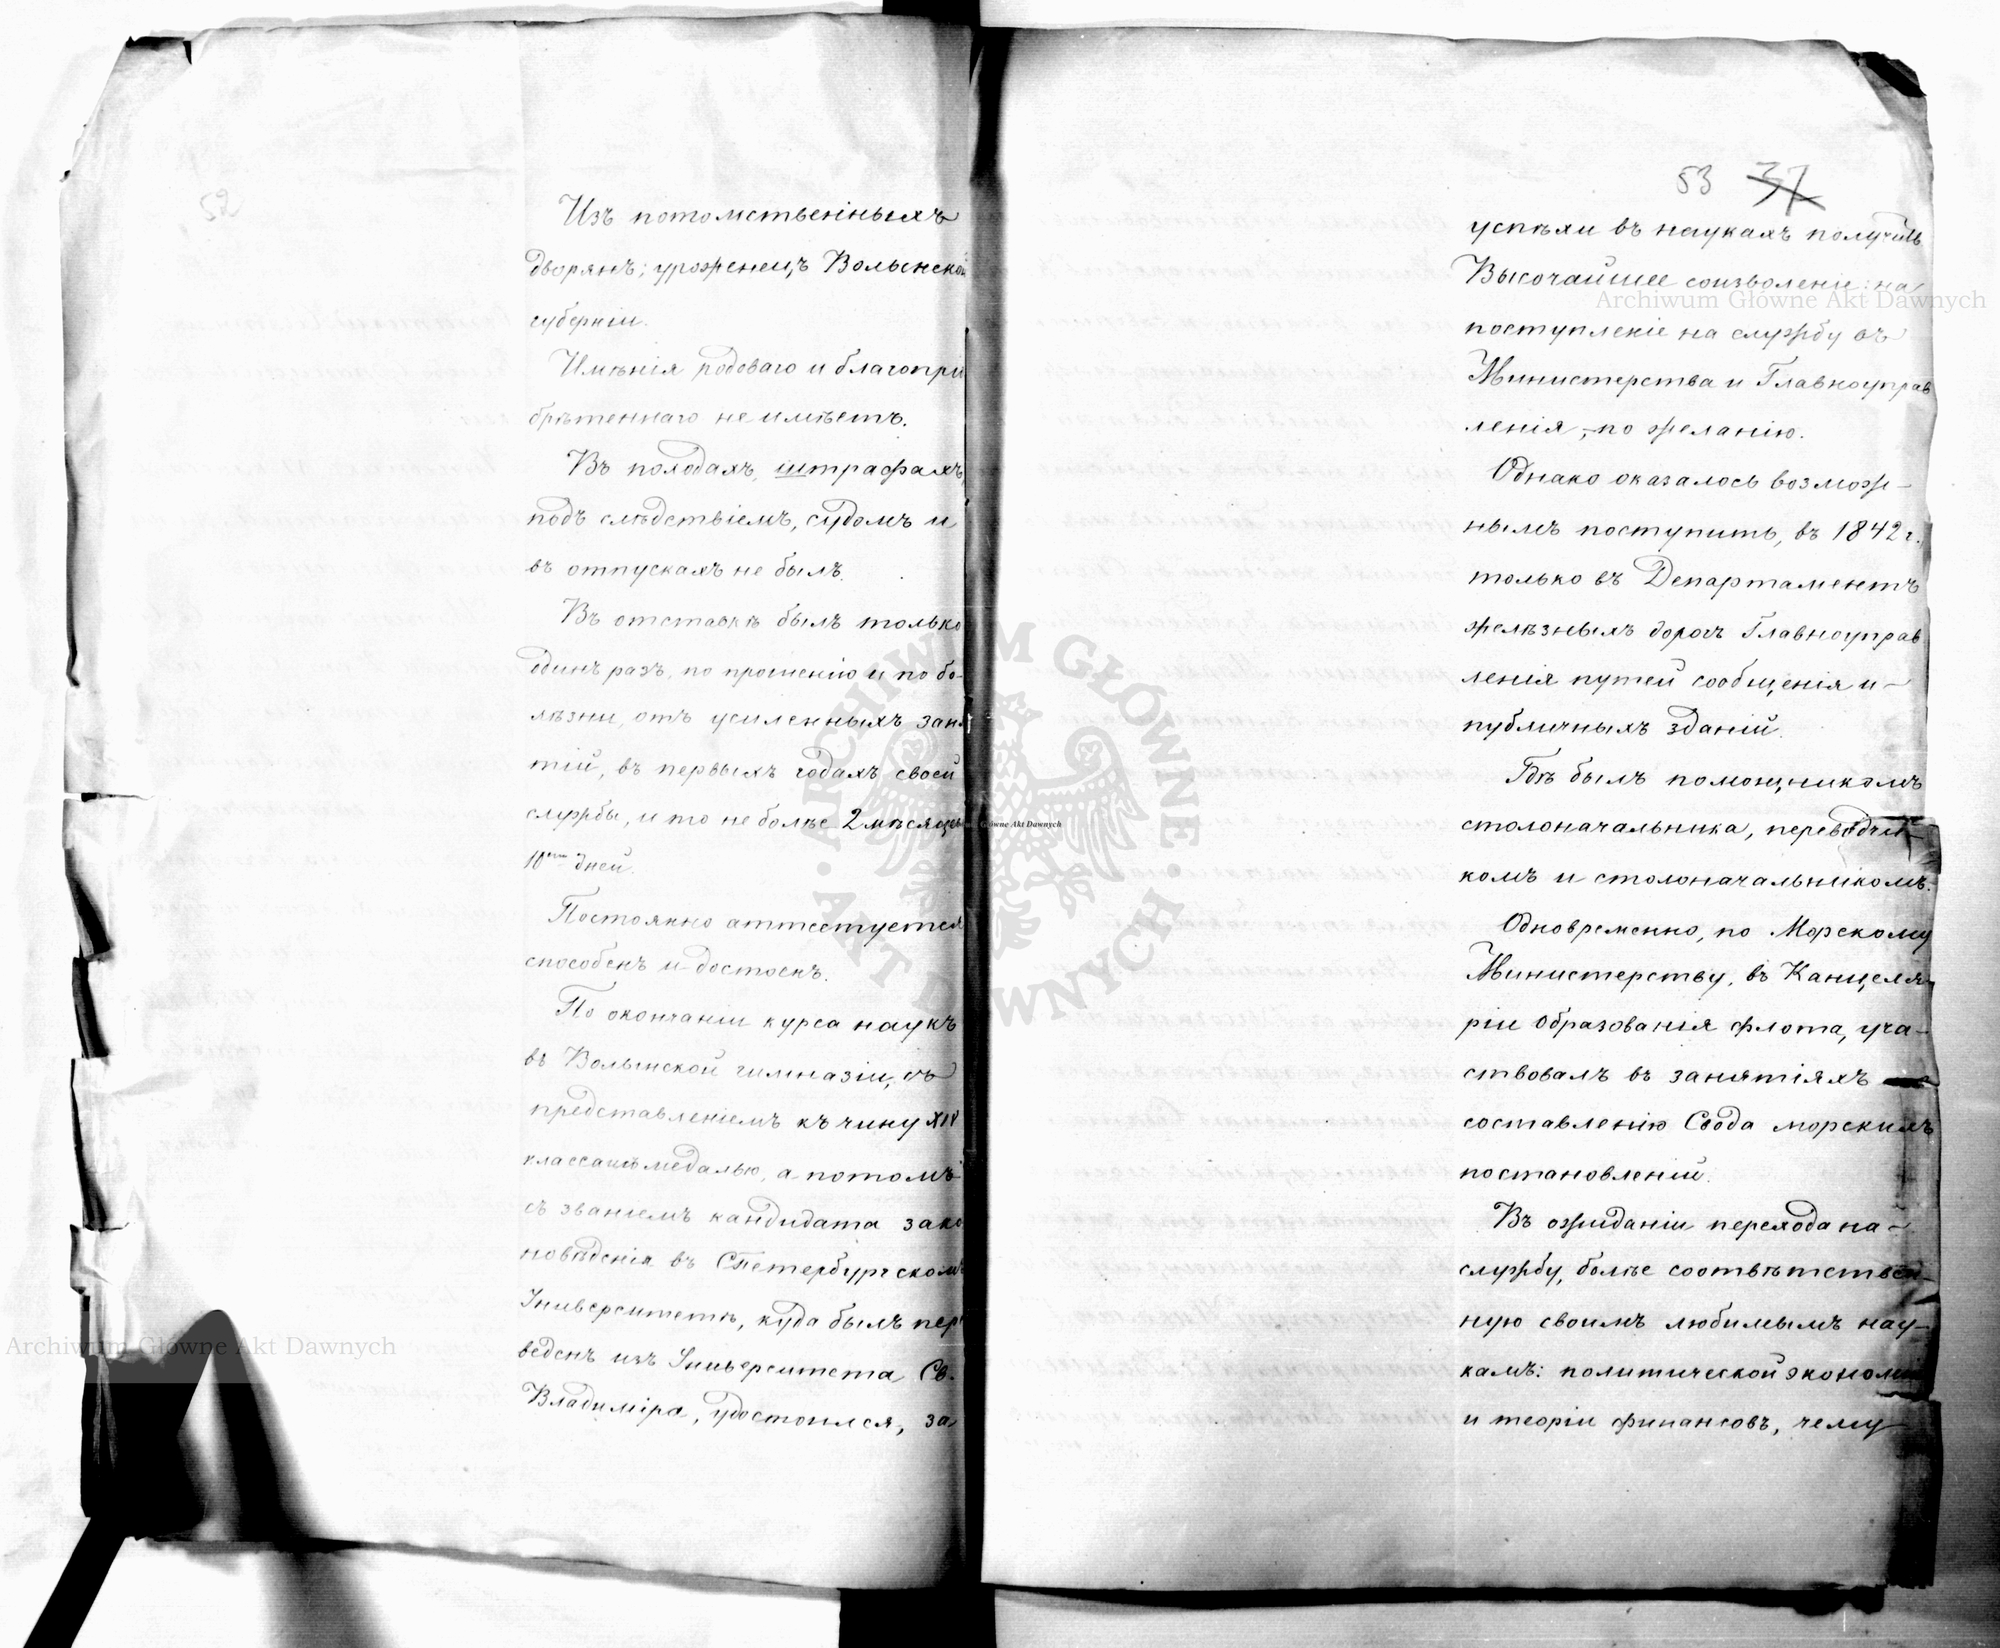 52
Изъ потомственныхъ
дворянъ; уроженецъ Волынской
губерніи.
Имѣнія родоваго и благопрі
брѣтеннаго не имѣетъ.
Въ походахъ, штрафахъ,
подъ слѣдствіемъ, судомъ и
въ отпускахъ не былъ.
Въ отставкѣ былъ только
одинъ разъ, по прошенію и по бо-
лѣзни, отъ усиленныхъ заня
тій, въ первыхъ годахъ своей
службы, и то не болѣе 2 мѣсяцъ
10ти дней.
Постоянно аттестуется
способенъ и достоенъ.
По окончаніи курса наукъ
въ Волынской гимназіи, съ
представленіемъ къ чину XIV
класса и медалью, а потомъ
съ званіемъ кандидата зако
новѣденія въ СПетербургскомъ
Университетѣ, куда былъ пер
веденъ изъ Университета Св.
Владиміра, удостоился, за
53 37
успѣхи въ наукахъ получить
Высочайшее соизволеніе: на
поступленіе на службу въ
Министерства и Главноуправ
ленія, по желанію.
Однако оказалось возмож-
нымъ поступить, въ 1842 г.,
только въ Департаментъ
желѣзныхъ дорогъ Главноуправ
ленія путей сообщенія и
публичныхъ зданій.
Гдѣ былъ помощникомъ
столоначальника, переводчи-
комъ и столоначальникомъ.
Одновременно, по Морскому
Министерству, въ Канцеля-
ріи образованія флота, уча-
ствовалъ въ занятіяхъ
составленію Свода морскихъ
постановленій.
Въ ожиданіи перехода на
службу, болѣе соотвѣтствен-
ную своимъ любимымъ нау-
камъ: политической экономіи
и теоріи финансовъ, чему
Archiwum Główne Akt Dawnych
Archiwum Główne Akt Dawnych
Główne Akt Dawnych
ARCHIWUM GŁÓWNE AKT DAWNYCH